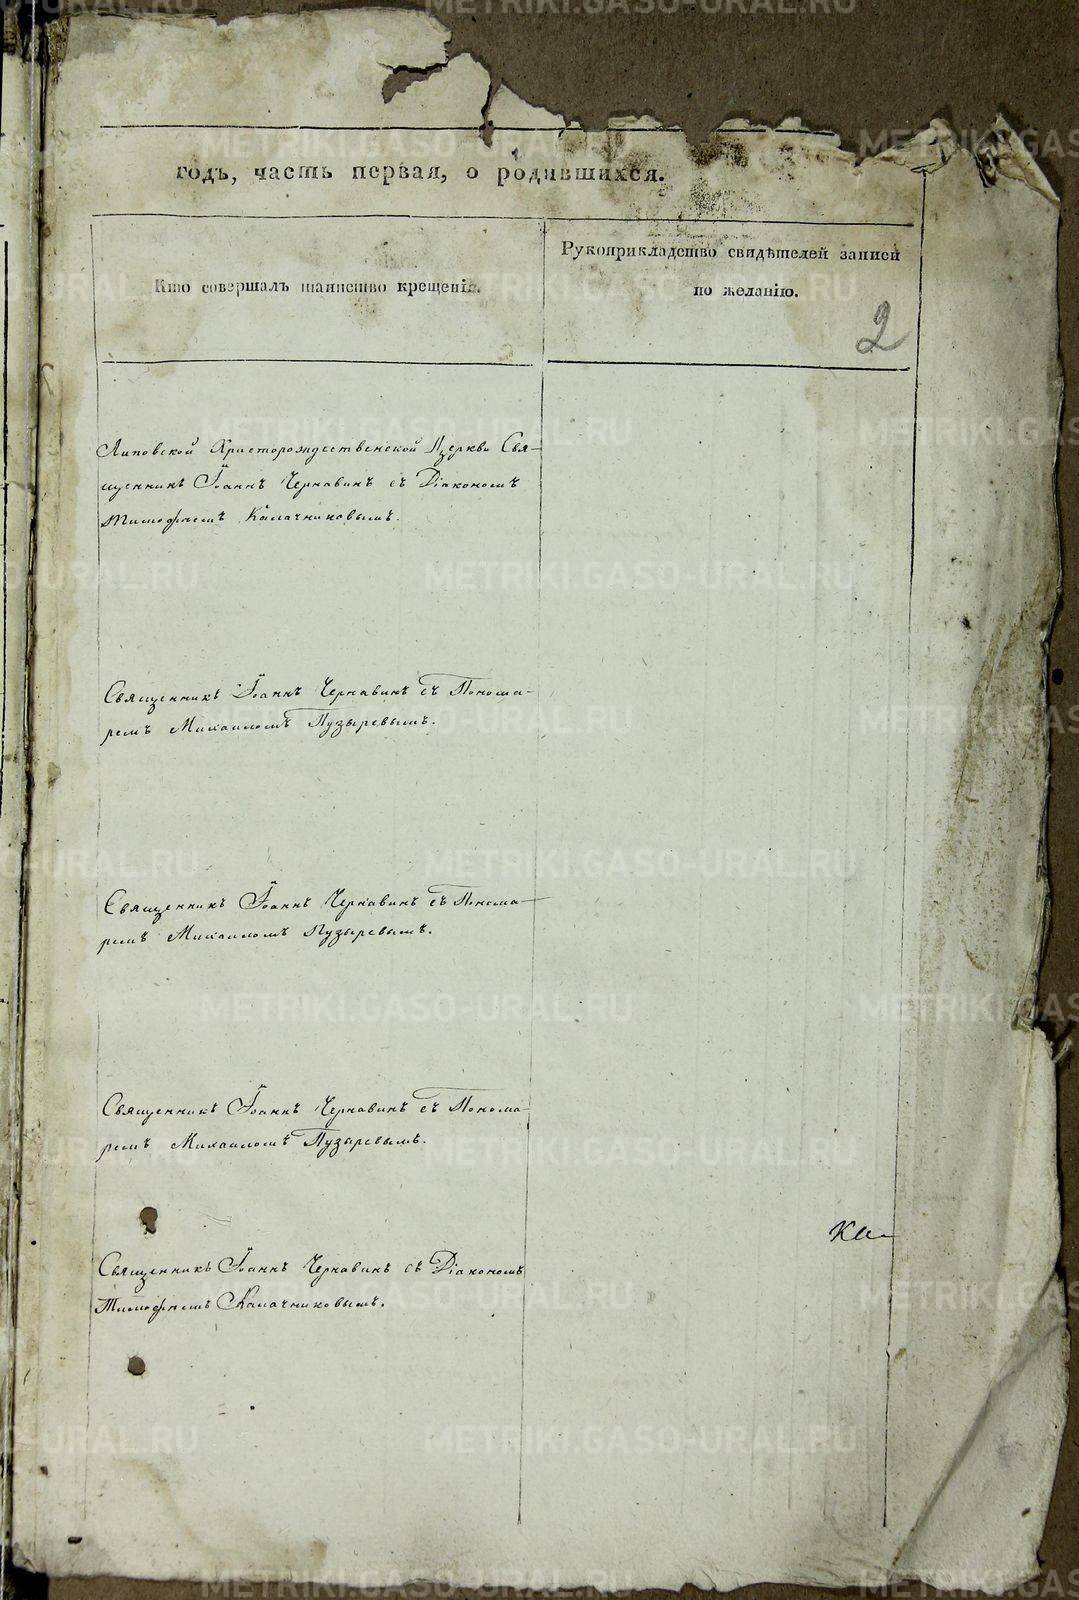 годъ, часть первая, о родившихся.
Кто совершалъ таинство крещенія.
Рукоприкладство свидѣтелей записи
по желанію.
2
Липовской Христорождественской Церкви Свя-
щенникъ Іоаннъ Чернавинъ съ Діакономъ
Тимофѣемъ Калачниковымъ.
Священникъ Іоаннъ Чернавинъ съ Понома-
ремъ Михаиломъ Пузыревымъ.
Священникъ Іоаннъ Чернавинъ съ Понома-
ремъ Михаиломъ Пузыревымъ.
Священникъ Іоаннъ Чернавинъ съ Понома-
ремъ Михаиломъ Пузыревымъ.
Священникъ Іоаннъ Чернавинъ съ Діакономъ
Тимофѣемъ Калачниковымъ.
METRIKI.GASO-URAL.RU